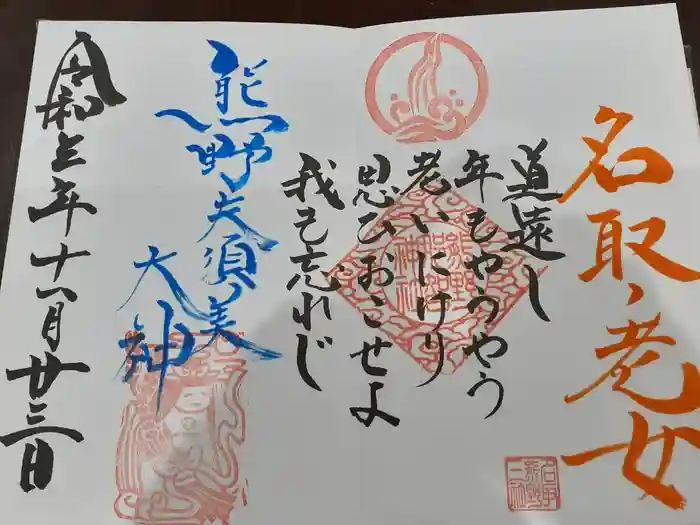 名取ノ老女
道遠し
年もやうやう
老いにけり
思ひおこせよ
我も忘れじ
熊野夫須美
大神
令和三年十一月廿三日